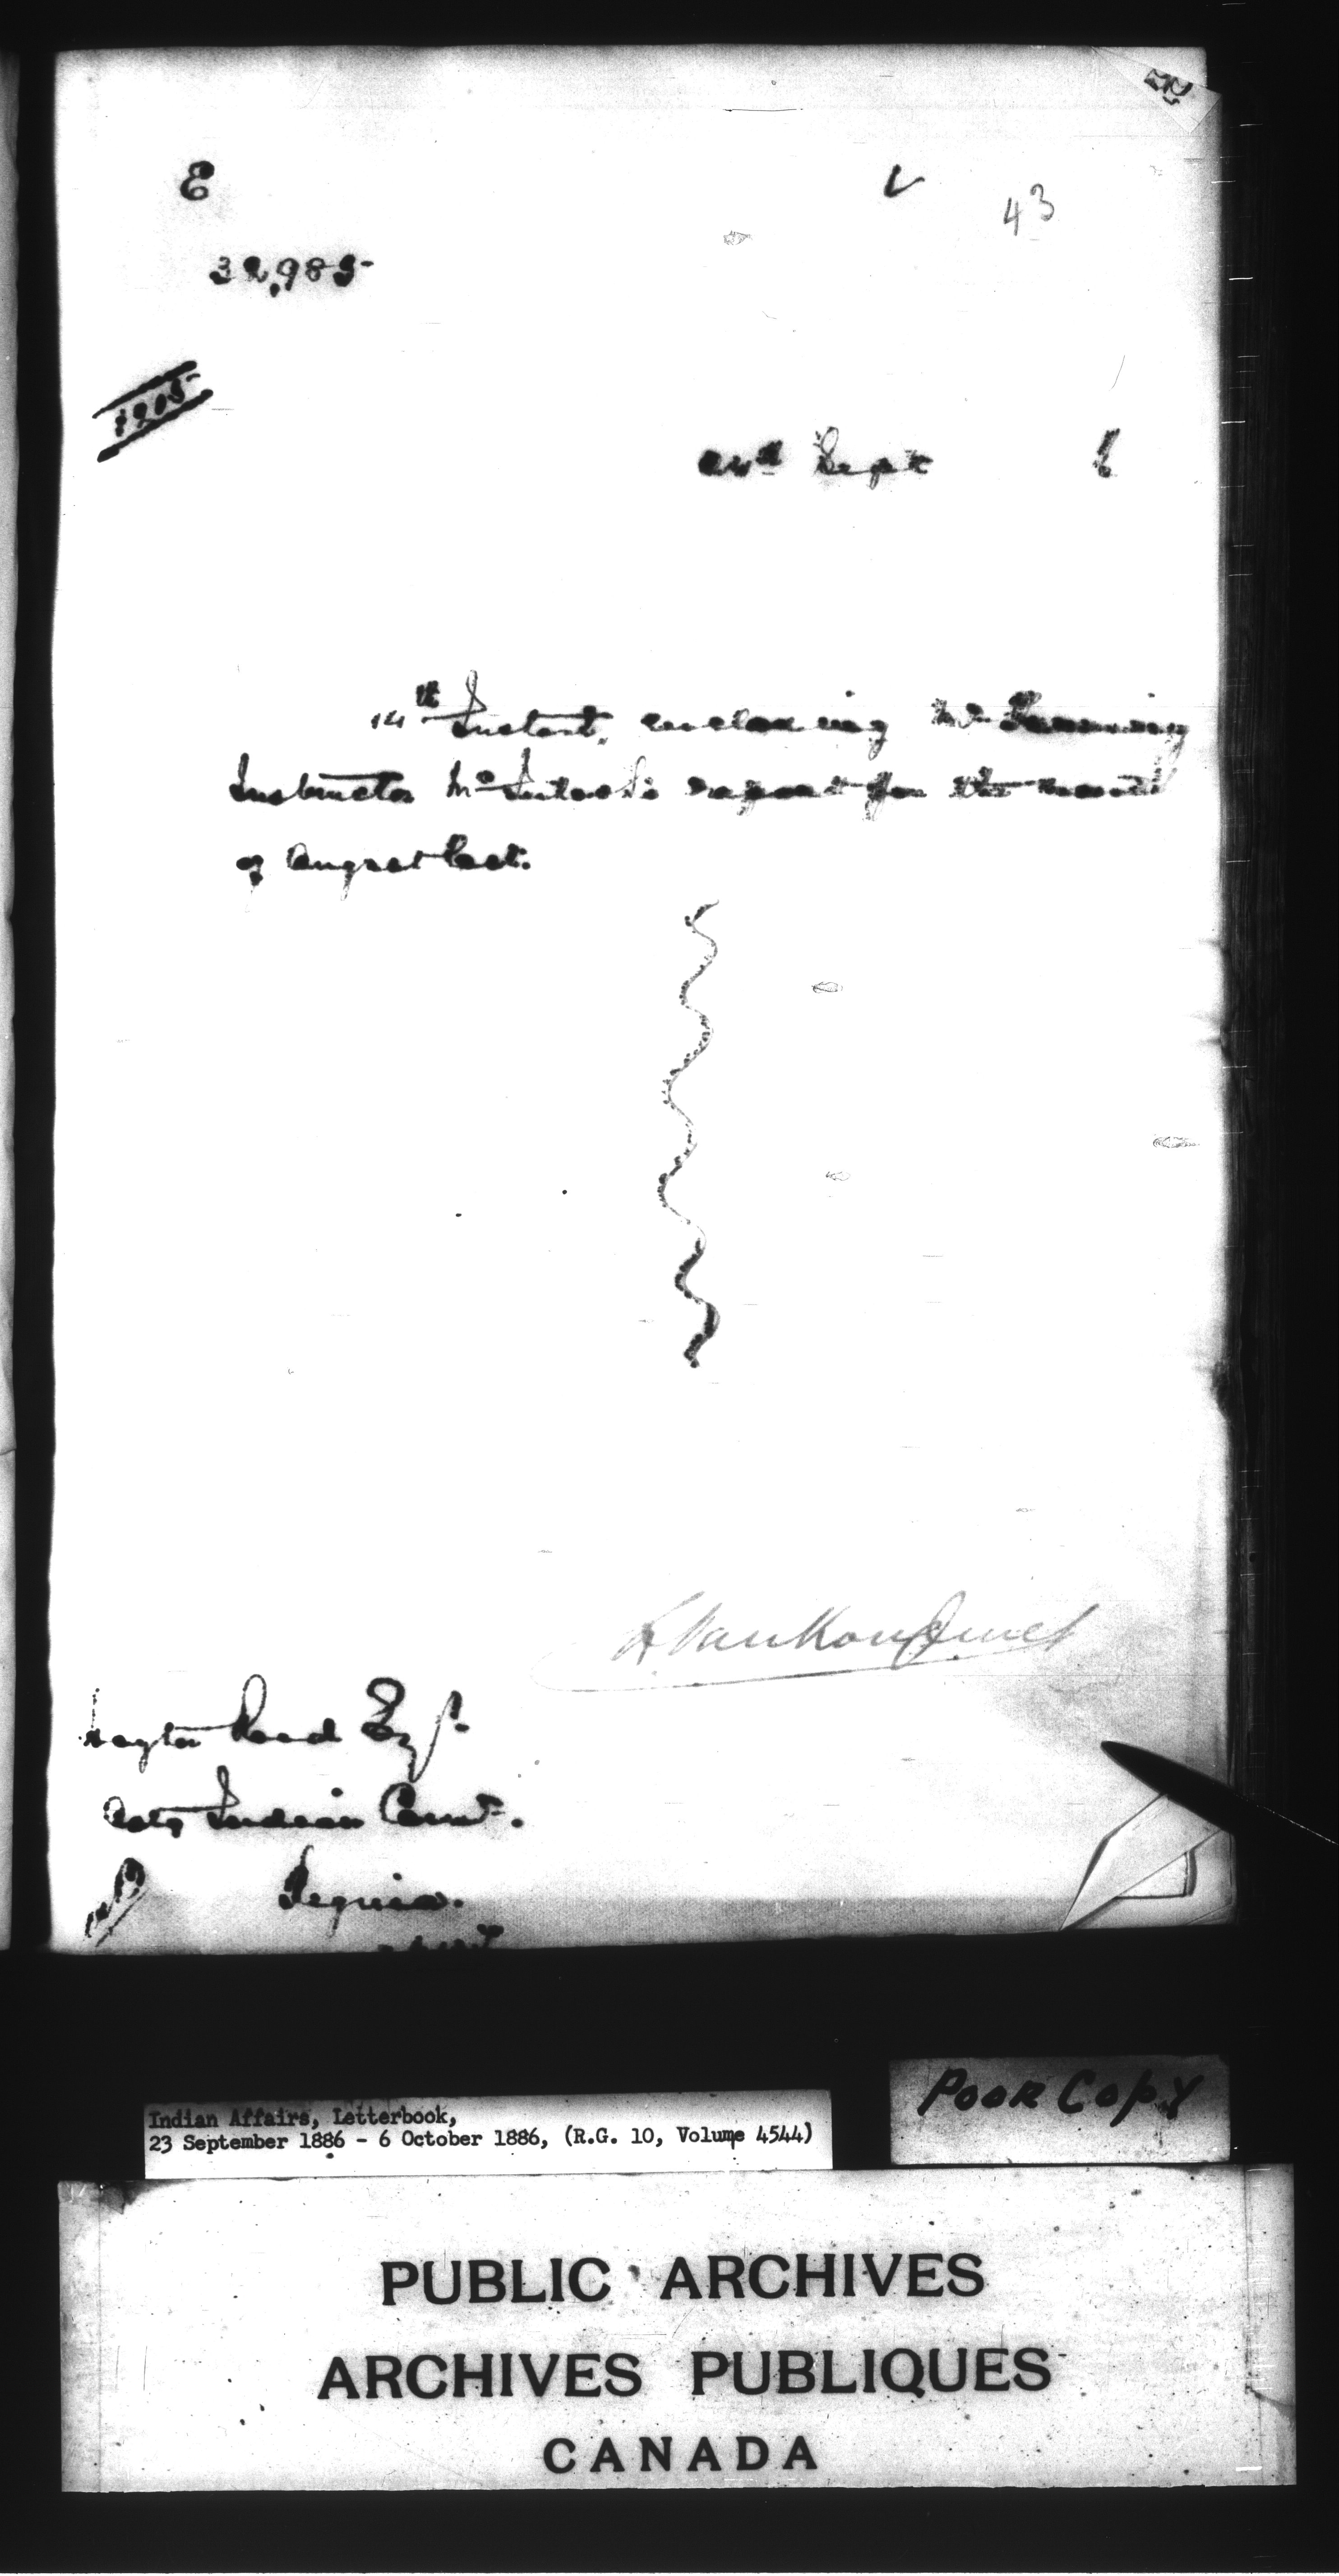 E
43
32,985
1205
Sept 6
14th Instant, enclosing Mr Farming
Instructor McIntosh's report for the month
of August last.
L. VanKoughnet
Hayter Reed Esqr.
Actg Indian Comr.
Regina.
POOR COPY
Indian Affairs, Letterbook,
23 September 1886 - 6 October 1886, (R.G. 10, Volume 4544)
PUBLIC ARCHIVES
ARCHIVES PUBLIQUES
CANADA